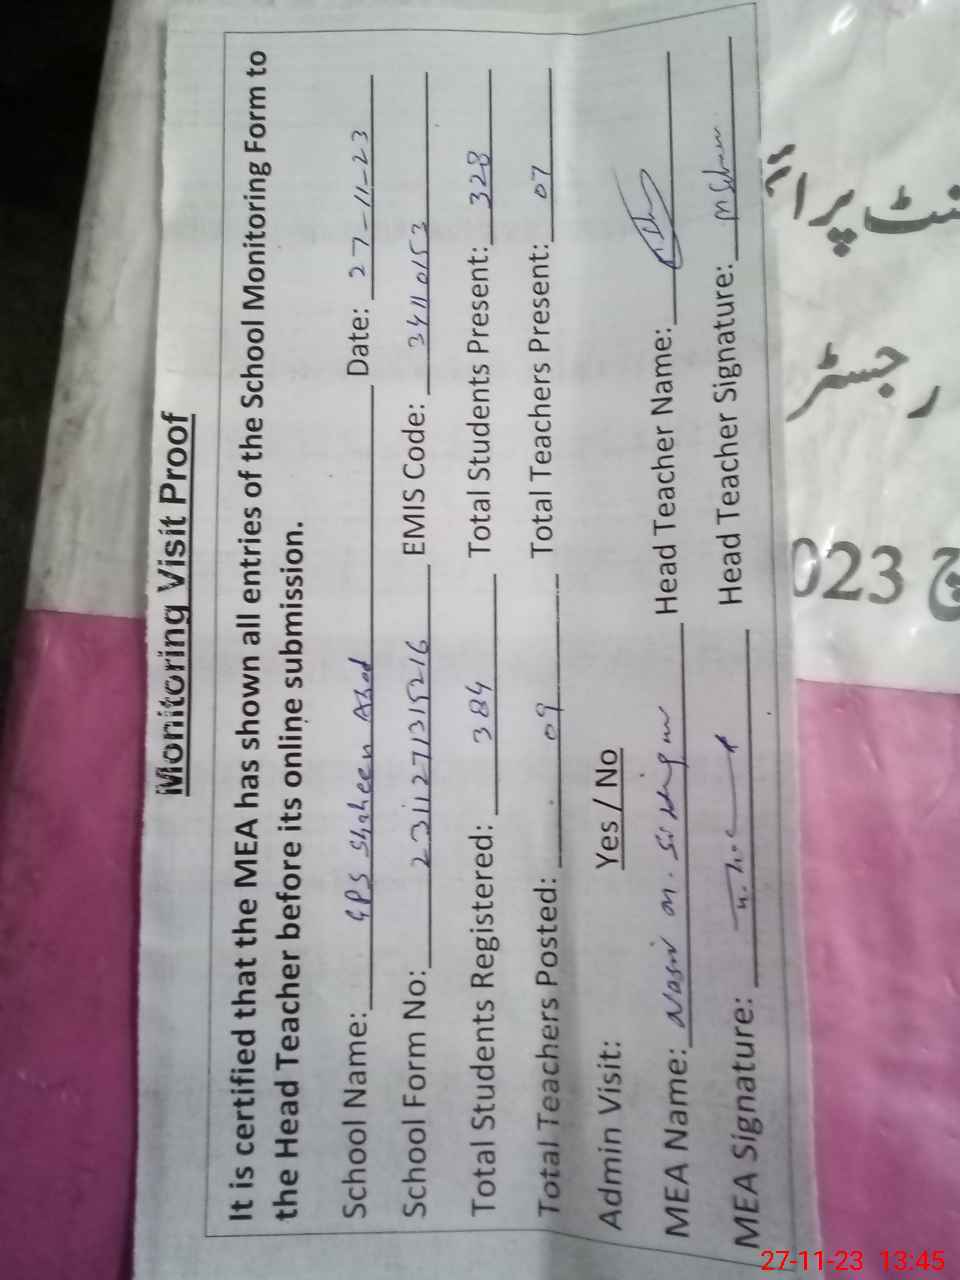 Monitoring Visit Proof
It is certified that the MEA has shown all entries of the School Monitoring Form to
the Head Teacher before its online submission.
School Name: GPS Shaheen Abad Date: 27-11-23
School Form No: 2311271315216 EMIS Code: 34110153
Total Students Registered: 384 Total Students Present: 328
Total Teachers Posted: 09 Total Teachers Present: 07
Admin Visit: Yes / No
MEA Name: Nasir m. Head Teacher Name:
MEA Signature: Head Teacher Signature:
رجسٹر
023
27-11-23 13:45